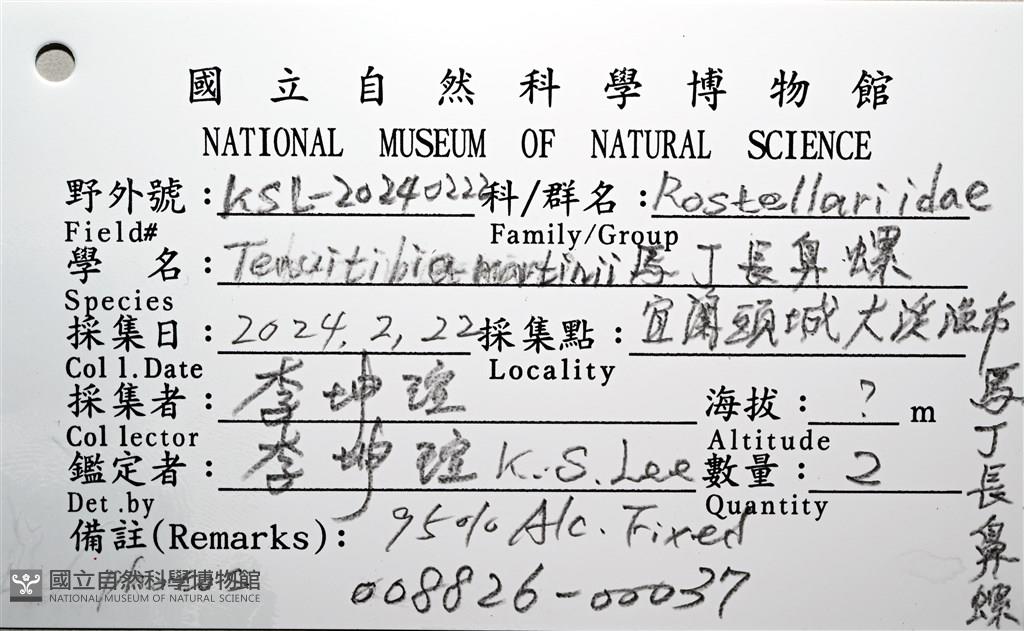 國立自然科學博物館
NATIONAL MUSEUM OF NATURAL SCIENCE
野外號：KSL-20240222 科/群名：Rostellariidae
Field# Family/Group
學 名：Tenuitibia martinii 馬丁長鼻螺
Species
採集日：2024.2,22 採集點：宜蘭頭城大溪漁市
Coll.Date Locality
採集者：李坤瑄 海拔：? m
Collector Altitude
鑑定者：李坤瑄 K.S.Lee 數量：2
Det.by Quantity
備註(Remarks)：95% Alc. Fixed
008826-00037
馬丁長鼻螺
國立自然科學博物館
NATIONAL MUSEUM OF NATURAL SCIENCE